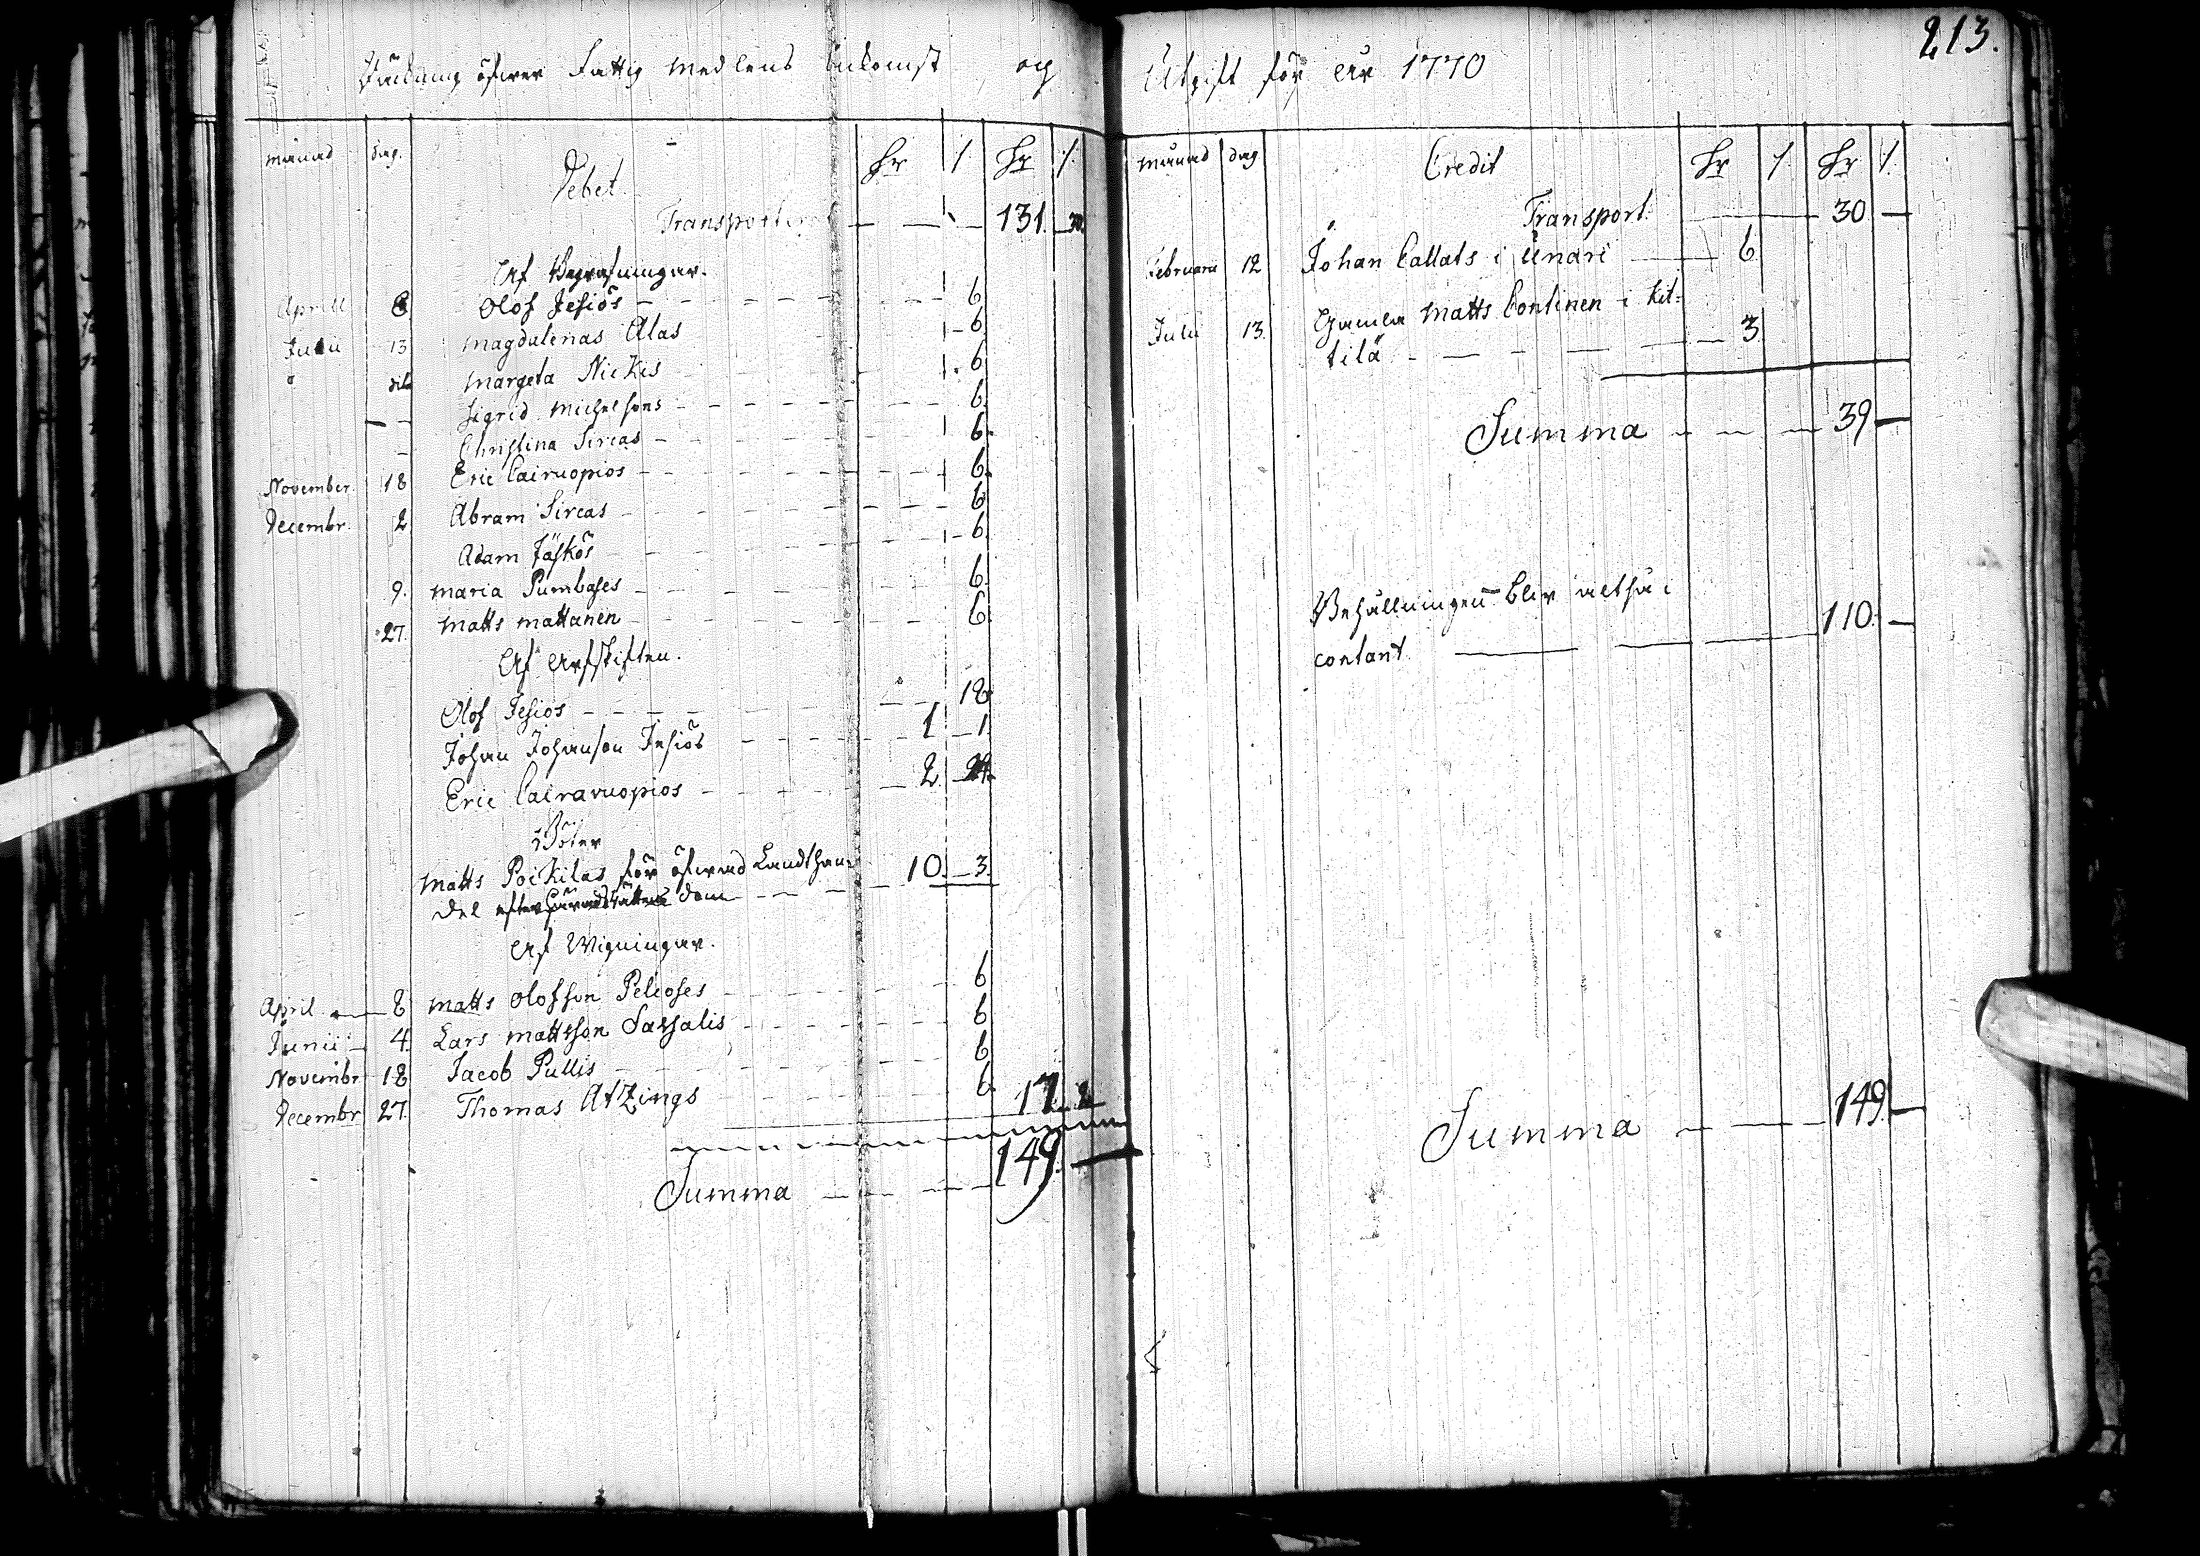 213.
Räkning öfwer Fattig medlens Inkomst och Utgift för år 1770
månad dag. Debet kr / kr /
Transporteras 131. 30.
Af Begrafningar.
Aprill 8 Olof Jesiös 6
Julii 13 Magdalenas Alas 6
dito Margeta Nickis 6
Sigrid Michelsons 6.
Christina Sircas 6.
November 18 Eric Cairuopios 6.
Decembr 2 Abram Sircas 6
Adam Jäskös 6.
9. Maria Pumbases 6.
27. Matts Mattanen 6.
Af Arfskiften.
Olof Jesiös 18
Johan Johanson Jesiös 1 1
Eric Cairavuopios 2. 24.
Böter
Matts Poikilas för öfwad Landthan-
del efter Häradsrättens dom 10. 3.
Af Wigningar.
April 8 Matts Olofson Pelioses 6
Junii 4. Lars Mattsson Sassalis 6
Novembr 18 Jacob Pullis 6
Decembr 27. Thomas Atzings 6. 17. 2
Summa 149.
månad dag Credit kr / kr /
Transport 30
Februarii 12 Johan Callats i Unari 6
Julii 13. Gamla Matts Continen i Kit-
tilä 3.
Summa 39
Behållningen blir altså i
contant 110.
Summa 149.